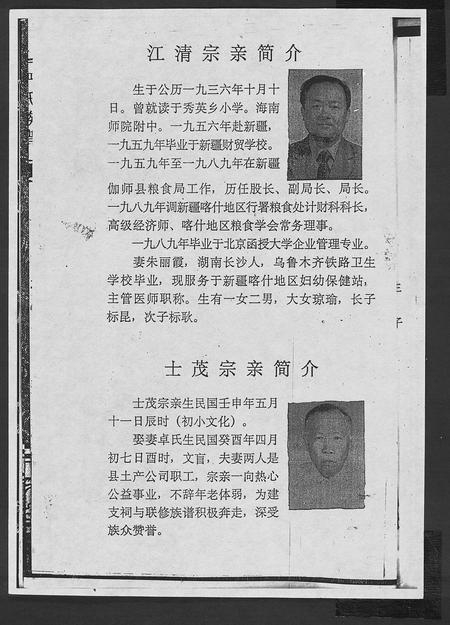 江清宗亲简介
生于公历一九三六年十月十
日。曾就读于秀英乡小学。海南
师院附中。一九五六年赴新疆，
一九五九年毕业于新疆财贸学校。
一九五九年至一九八九年在新疆
伽师县粮食局工作，历任股长、副局长、局长。
一九八九年调新疆喀什地区行署粮食处计财科科长，
高级经济师、喀什地区粮食学会常务理事。
一九八九年毕业于北京函授大学企业管理专业。
妻朱丽霞，湖南长沙人，乌鲁木齐铁路卫生
学校毕业，现服务于新疆喀什地区妇幼保健站，
主管医师职称。生有一女二男，大女琼瑜，长子
标昆，次子标耿。
士茂宗亲简介
士茂宗亲生民国壬申年五月
十一日辰时（初小文化）。
娶妻卓氏生民国癸酉年四月
初七日酉时，文盲，夫妻两人是
县土产公司职工，宗亲一向热心
公益事业，不辞年老体弱，为建
支祠与联修族谱积极奔走，深受
族众赞誉。